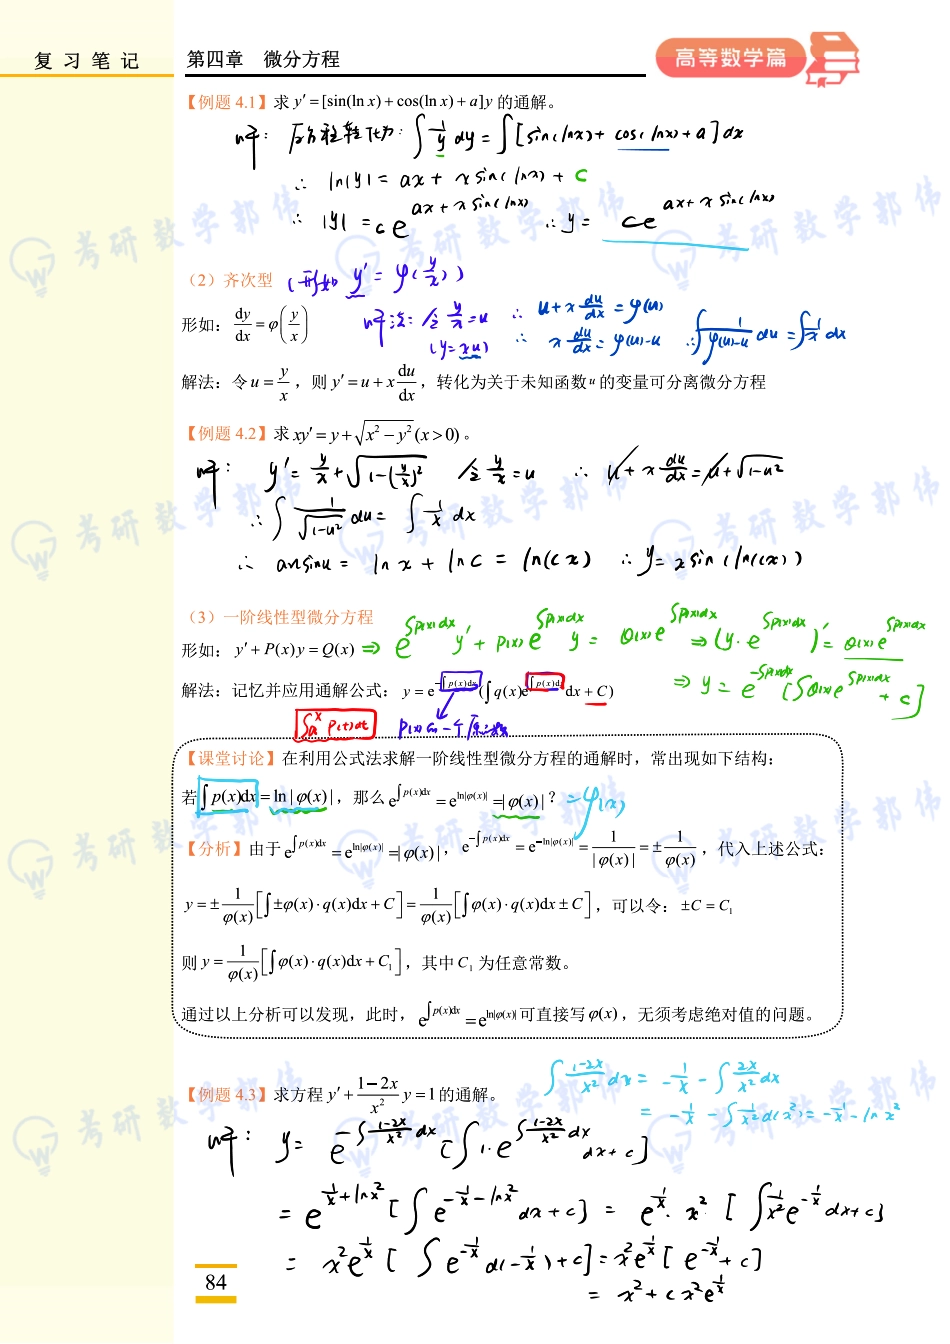 复 习 笔 记
第四章 微分方程
高等数学篇
【例题 4.1】求 y′=[sin(ln x)+cos(ln x)+a]y 的通解。
解: 原方程转化为: ∫ 1/y dy = ∫[sin(lnx)+cos(lnx)+a]dx
∴ ln|y| = ax + x sin(lnx) + C
∴ |y| = ce^{ax+x sin(lnx)} ∴ y = ce^{ax+x sin(lnx)}
(2) 齐次型 (形如 y′=φ(y/x))
形如: dy/dx=φ(y/x)
解法: 令 y/x=u (y=xu) ∴ u+x du/dx=φ(u)
∴ x du/dx=φ(u)-u ∴ ∫ 1/(φ(u)-u) du=∫ 1/x dx
解法: 令 u=y/x, 则 y′=u+x du/dx, 转化为关于未知函数 u 的变量可分离微分方程
【例题 4.2】求 xy′=y+√(x²-y²)(x>0)。
解: y′=y/x+√(1-(y/x)²) 令 y/x=u ∴ u+x du/dx=u+√(1-u²)
∴ ∫ 1/√(1-u²) du=∫ 1/x dx
∴ arcsinu = ln x + ln C = ln(cx) ∴ y=x sin(ln(cx))
(3) 一阶线性型微分方程
形如: y′+P(x)y=Q(x) ⇒ e^{∫p(x)dx} y′+p(x)e^{∫p(x)dx} y = Q(x)e^{∫p(x)dx} ⇒ (y·e^{∫p(x)dx})′=Q(x)e^{∫p(x)dx}
解法: 记忆并应用通解公式: y=e^{-∫p(x)dx}(∫q(x)e^{∫p(x)dx}dx+C) ⇒ y=e^{-∫p(x)dx}[∫Q(x)e^{∫p(x)dx}+c]
∫ₐˣ p(t)dt p(x)的一个原函数
【课堂讨论】在利用公式法求解一阶线性型微分方程的通解时, 常出现如下结构:
若 ∫p(x)dx=ln|φ(x)|, 那么 e^{∫p(x)dx}=e^{ln|φ(x)|}=|φ(x)|? =φ(x)
【分析】由于 e^{∫p(x)dx}=e^{ln|φ(x)|}=|φ(x)|, e^{-∫p(x)dx}=e^{-ln|φ(x)|}=1/|φ(x)|=±1/φ(x), 代入上述公式:
y=±1/φ(x)[∫±φ(x)·q(x)dx+C]=1/φ(x)[∫φ(x)·q(x)dx±C], 可以令: ±C=C₁
则 y=1/φ(x)[∫φ(x)·q(x)dx+C₁], 其中 C₁ 为任意常数。
通过以上分析可以发现, 此时, e^{∫p(x)dx}=e^{ln|φ(x)|}可直接写φ(x), 无须考虑绝对值的问题。
∫ (1-2x)/x² dx = -1/x - ∫ 2x/x² dx
【例题 4.3】求方程 y′+(1-2x)/x² y=1 的通解。
= -1/x - ∫ 1/x² d(x²)= -1/x - ln x²
解: y= e^{-∫(1-2x)/x² dx}[∫1·e^{∫(1-2x)/x² dx}dx+c]
= e^{1/x+lnx²}[∫e^{-1/x-lnx²}dx+c] = e^{1/x}·x²[∫ 1/x² e^{-1/x}dx+c]
= x²e^{1/x}[∫e^{-1/x}d(-1/x)+c]=x²e^{1/x}[e^{-1/x}+c]
= x²+cx²e^{1/x}
84
考研数学郭伟